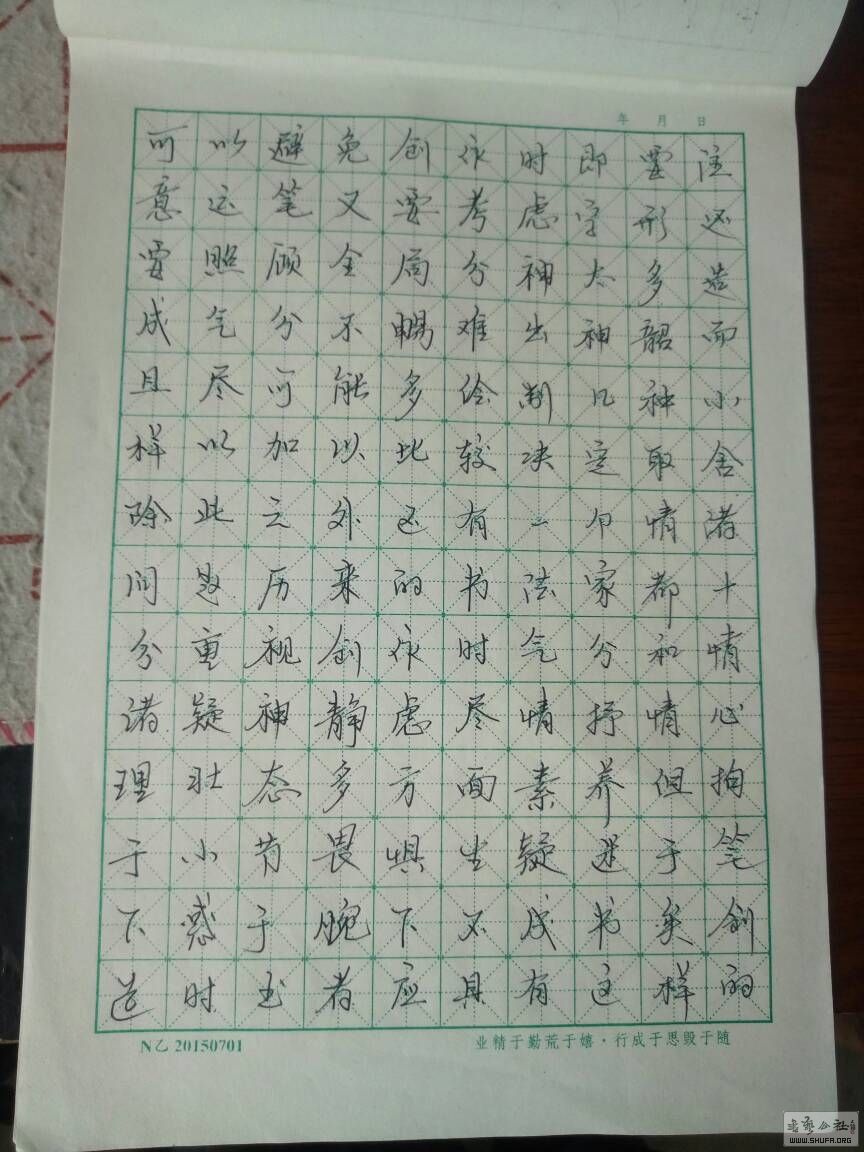 年 月 日
可以避免创作时即要注
意运笔又要考虑字形还
要照顾全局分神太多造
成气分不畅难出神韶而
且尽可能多给制几种小
样以加以比较决定取舍
除此之外还有一个情绪
问题历来的书法家都十
分重视创作时气分和情
绪疑神静虑尽情抒情心
理壮态多方面素养但拘
于小节畏惧生疑迷于笔
下惑于腕下不成书矣创
造时书者应具有这样的
N乙 20150701 业精于勤荒于嬉·行成于思毁于随
书艺公社
WWW.SHUFA.ORG